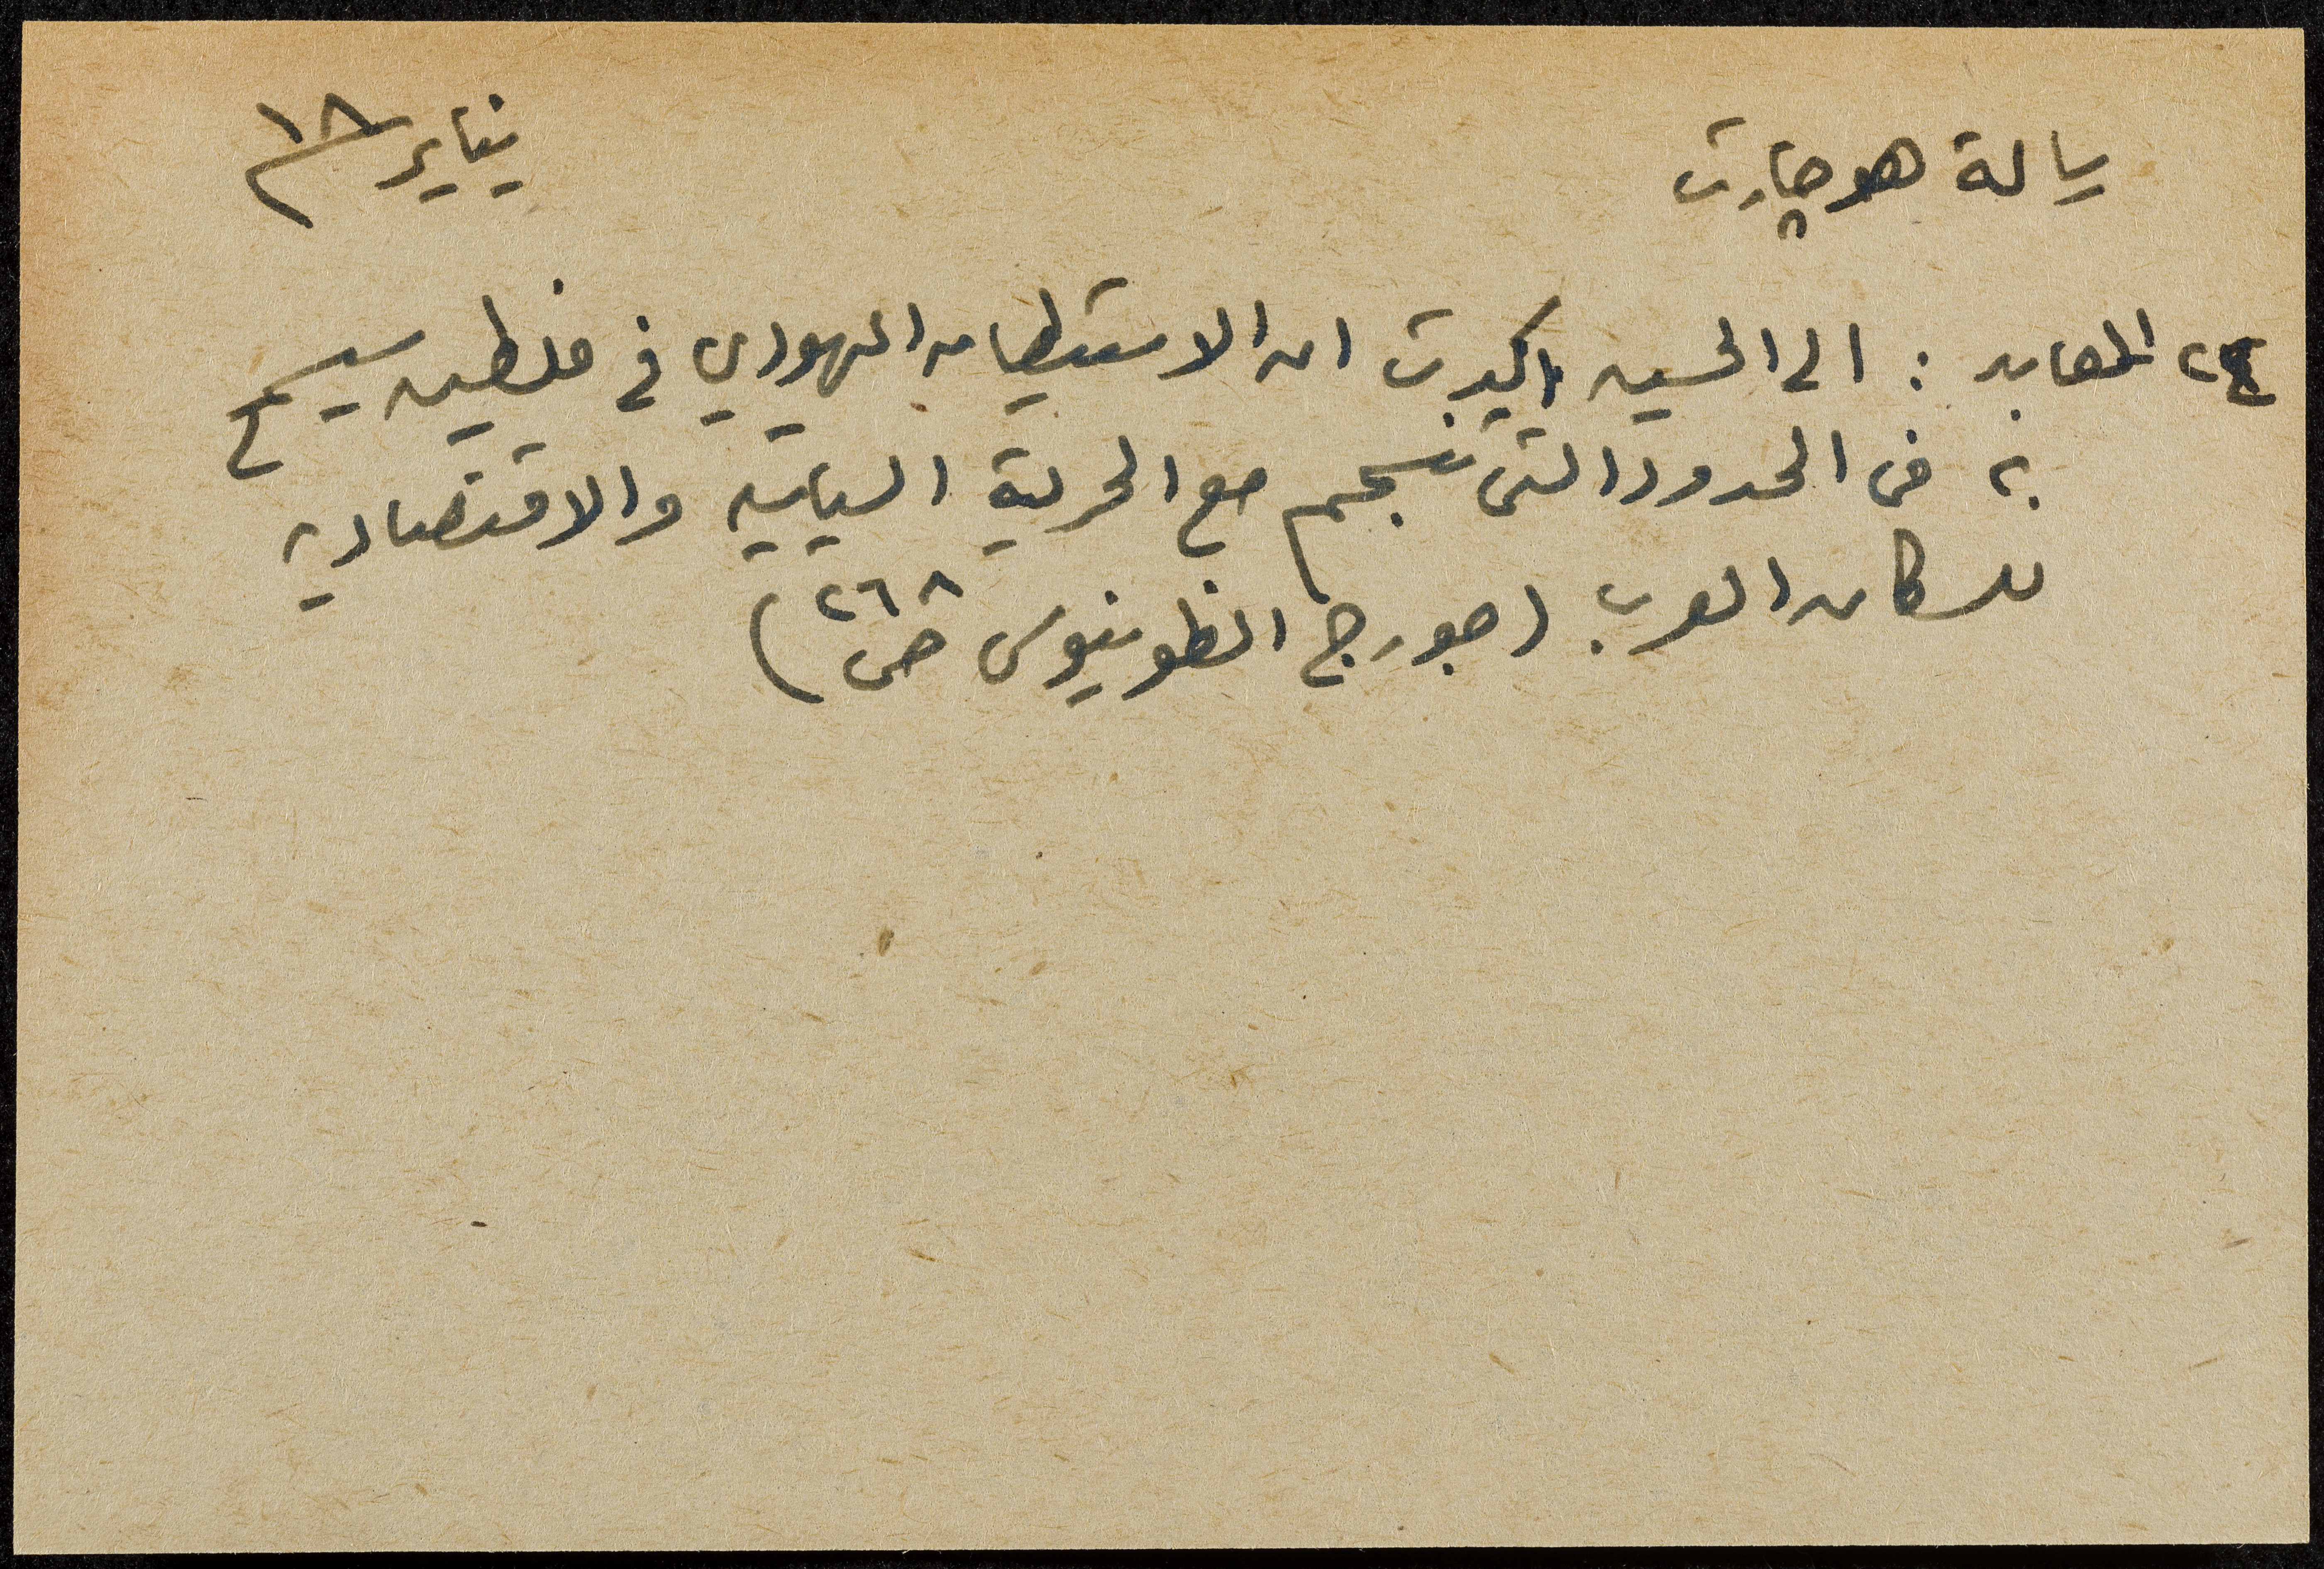 رسالة هوجارت
يناير ١٨
٢٤ المعابد : الى الحسين اكدت ان الاستيطان اليهودي في فلسطين سيسمح
به في الحدود التي تنسجم مع الحرية السياسية والاقتصادية
للسكان العرب (جورج انطونيوس ص ٢٦٨)